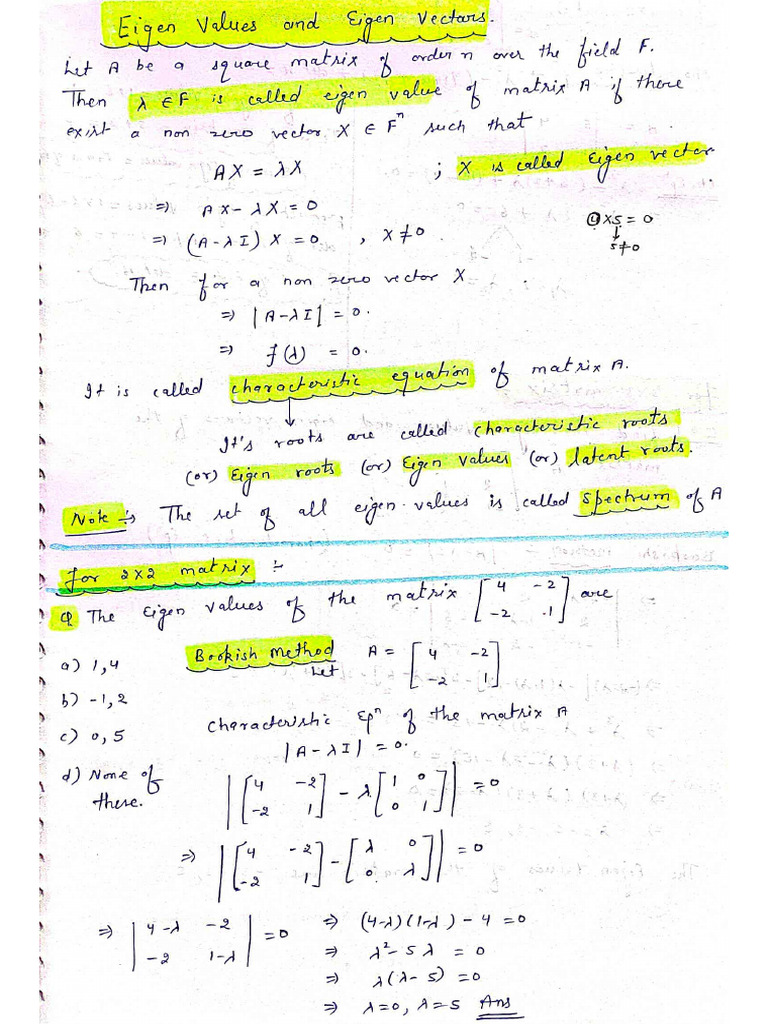 Eigen Values and Eigen Vectors.
Let A be a square matrix of order n over the field F.
Then λ ∈ F is called eigen value of matrix A if there
exist a non zero vector X ∈ Fⁿ such that
AX = λX ; X is called Eigen vector
⇒ AX - λX = 0
⇒ (A - λI) X = 0 , X ≠ 0
0 x 5 = 0
↓
5 ≠ 0
Then for a non zero vector X
⇒ |A - λI| = 0.
⇒ f(λ) = 0.
It is called characteristic equation of matrix A.
↓
It's roots are called characteristic roots
(or) Eigen roots (or) Eigen values (or) latent roots.
Note :→ The set of all eigen values is called Spectrum of A
for 2x2 matrix :-
Q The Eigen values of the matrix [4 -2; -2 1] are
a) 1, 4
b) -1, 2
c) 0, 5
d) None of
these.
Bookish Method
Let A = [4 -2; -2 1]
Characteristic Eqⁿ of the matrix A
|A - λI| = 0.
|[4 -2; -2 1] - λ[1 0; 0 1]| = 0
⇒ |[4 -2; -2 1] - [λ 0; 0 λ]| = 0
⇒ |4-λ -2; -2 1-λ| = 0
⇒ (4-λ)(1-λ) - 4 = 0
⇒ λ² - 5λ = 0
⇒ λ(λ - 5) = 0
⇒ λ = 0, λ = 5 Ans